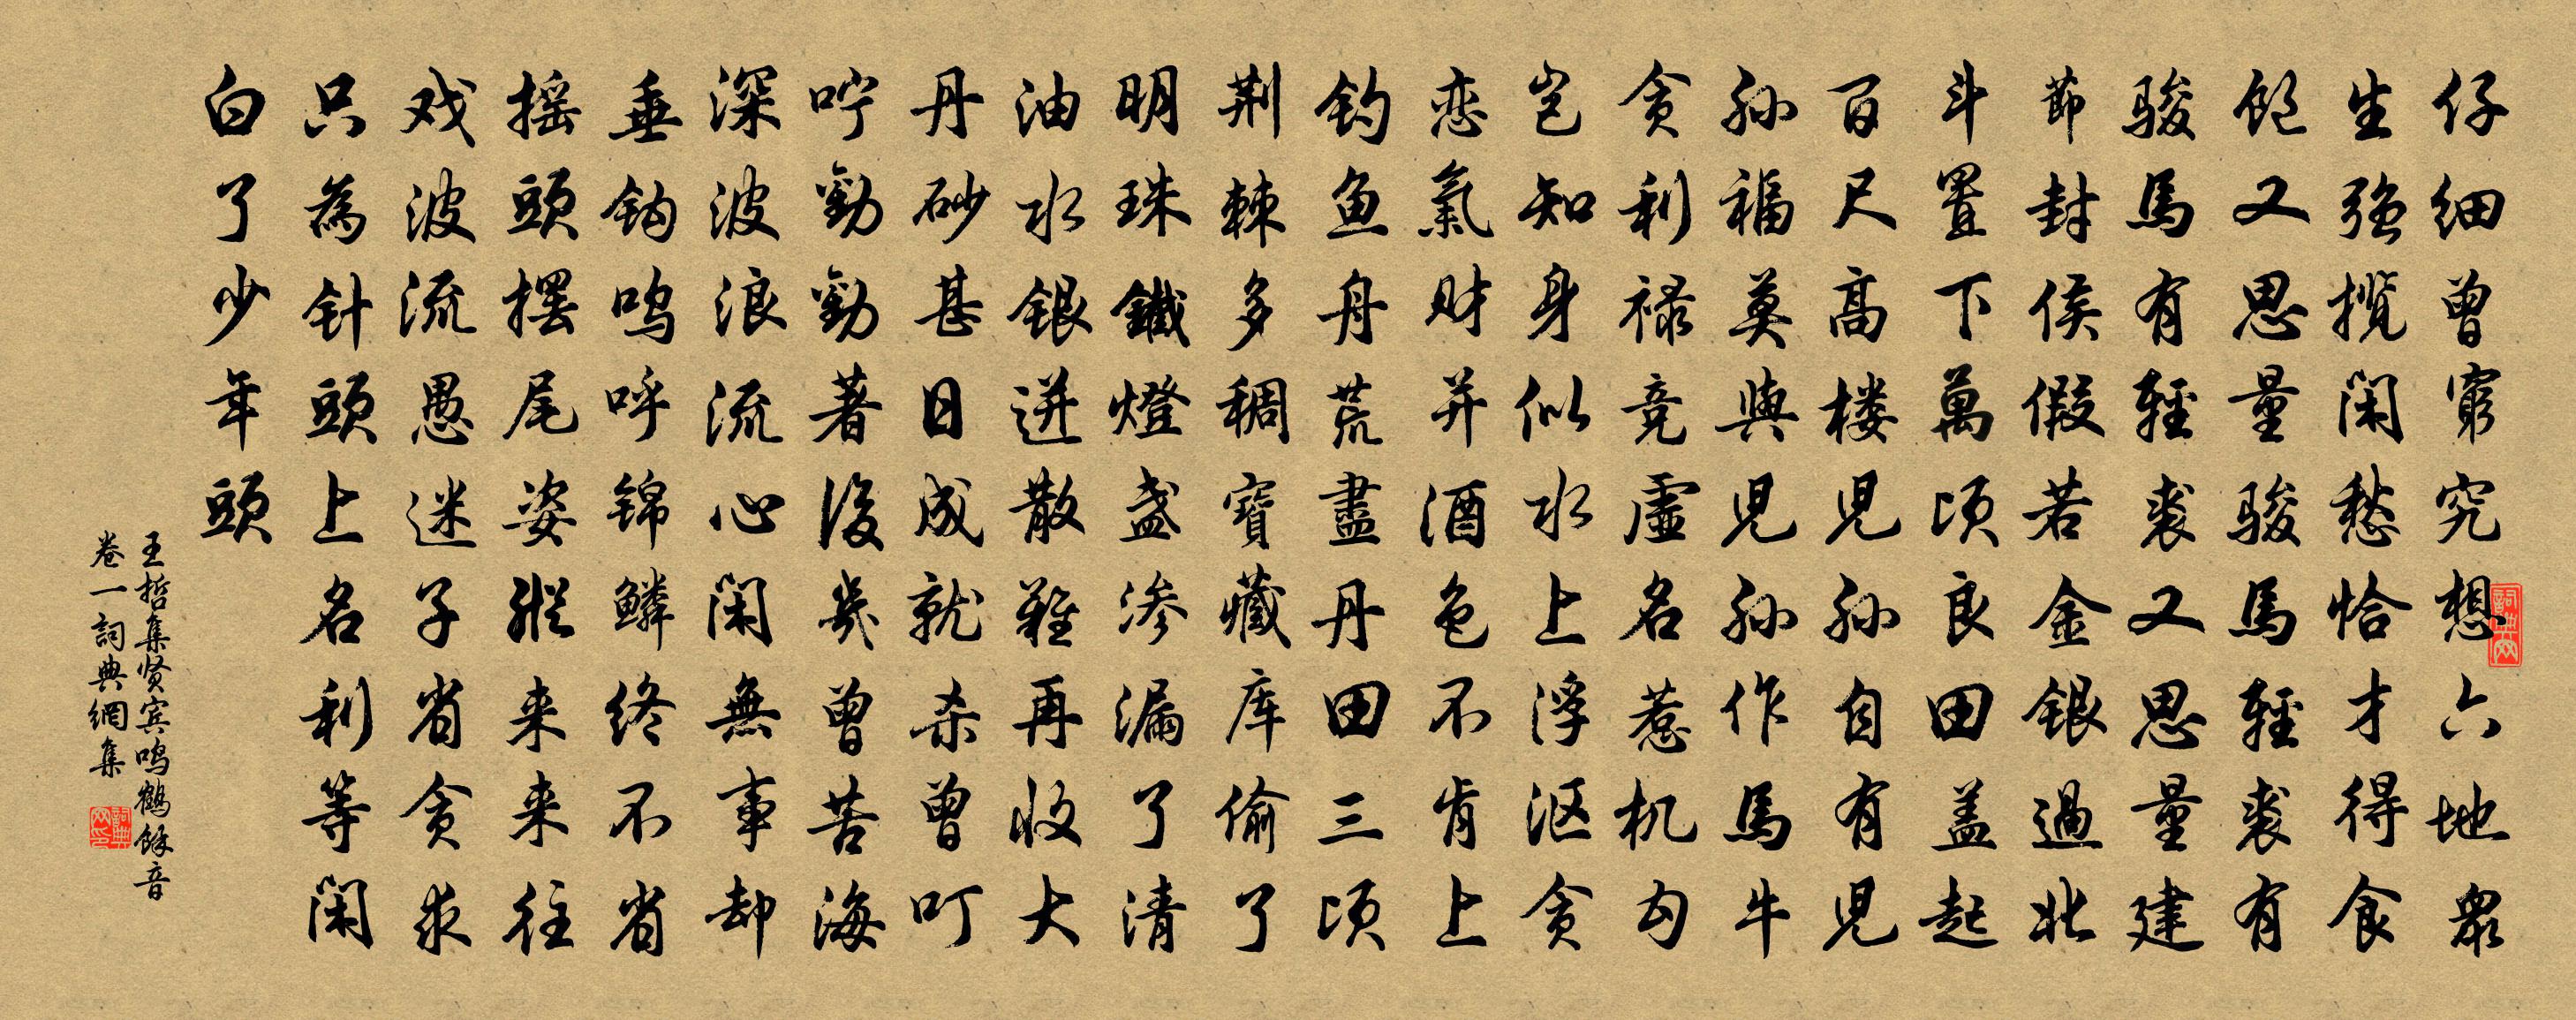 仔细曾窮究想六地眾
生強揽闲愁恰才得食
饱又思量骏馬轻裘有
骏馬有轻裘又思量建
節封侯假若金银過北
斗置下萬顷良田盖起
百尺高楼儿孙自有儿
孙福莫與儿孙作馬牛
贪利禄竞虚名惹机勾
岂知身似水上浮沤贪
恋氣财并酒色不肯上
钓鱼舟荒盡丹田三顷
荆棘多稠寶藏库偷了
明珠鐵燈盏渗漏了清
油水银迸散難再收大
丹砂甚日成就杀曾叮
咛勸勸著後幾曾苦海
深波浪流心闲無事却
垂钩鸣呼锦鳞终不省
摇頭摆尾姿縱来来往
戏波流愚迷子省贪求
只為针頭上名利等闲
白了少年頭
王哲集贤宾鸣鹤餘音
卷一詞典網集
詞典网
詞典网印